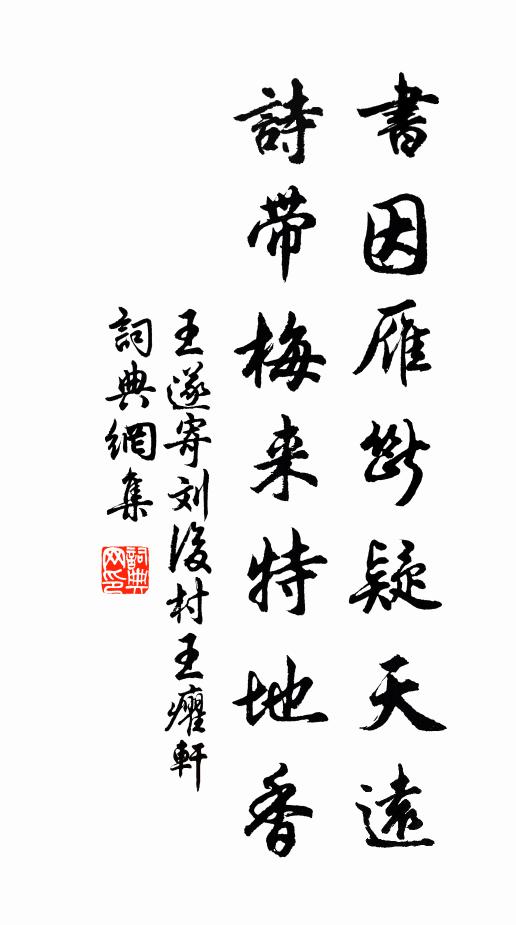 書因雁斷疑天遠
詩帶梅来特地香
王遂寄刘後村王癯軒
詞典網集
詞典网印